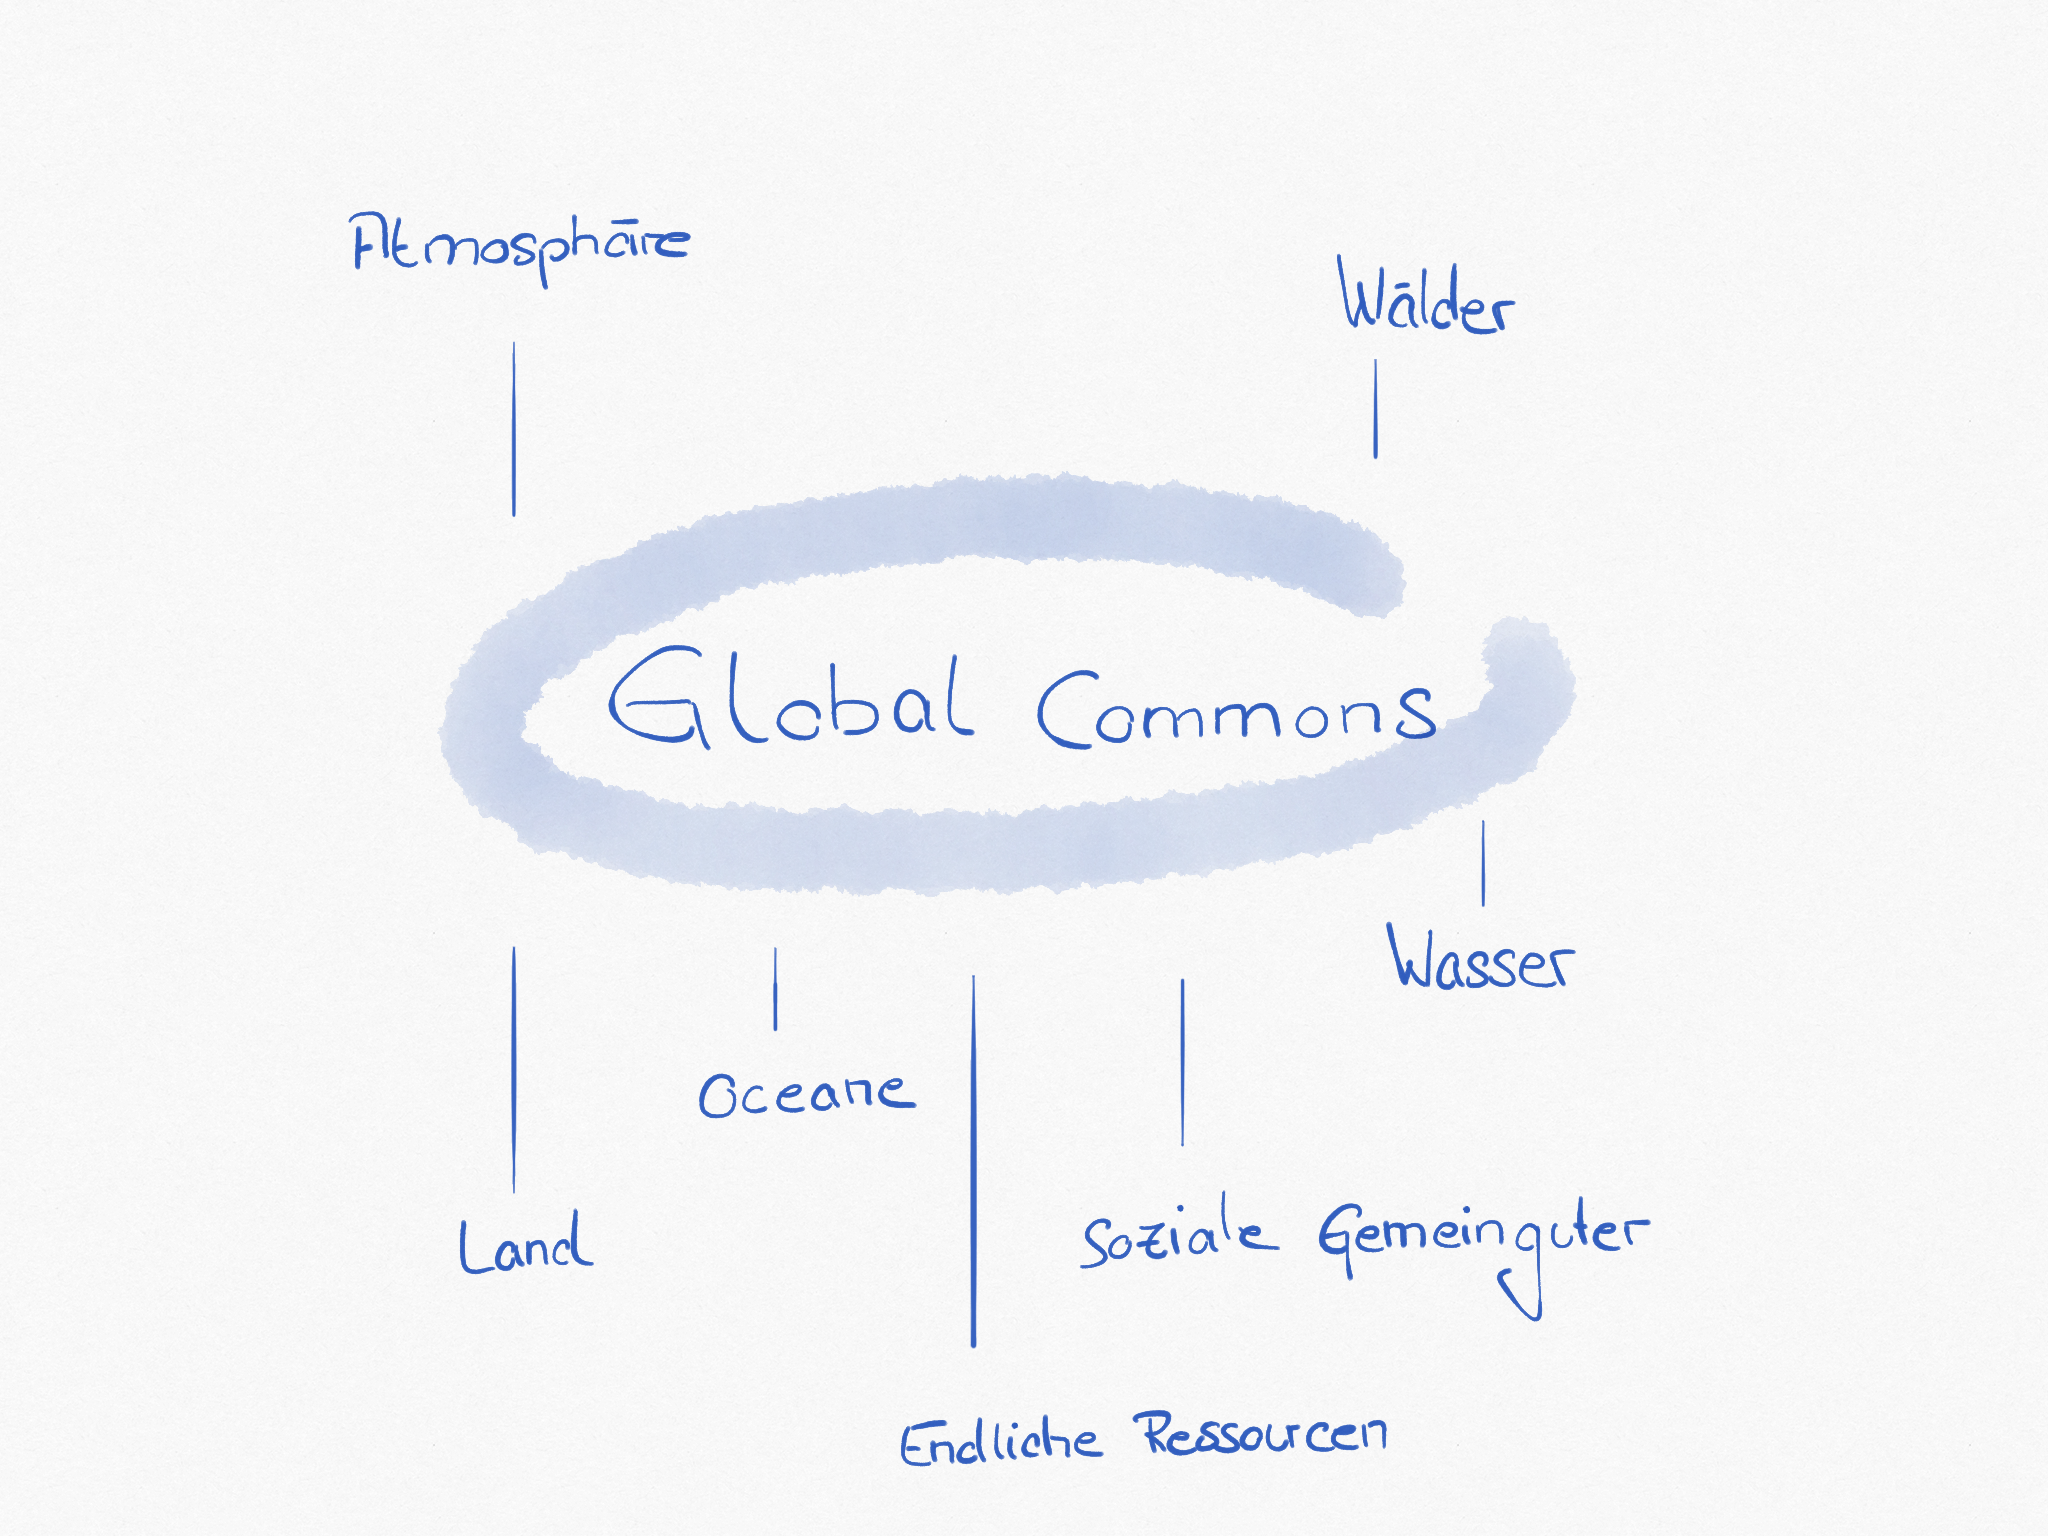 Atmosphäre
Wälder
Global Commons
Wasser
Oceane
Land
Soziale Gemeinguter
Endliche Ressourcen